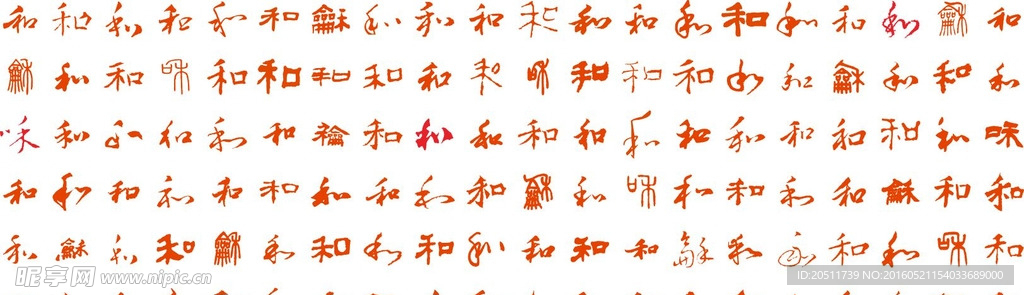 和和和和和和龢和和和和和和和和和和和龢和
龢和和咊和和和和和和咊和和和和和龢和和和
咊和和和和和龢和和和和和和和和和和和和咊
和和和和和和和和和和龢和咊和和和和龢和和
和龢和和龢和和和和和和和和龢和和和和咊和
昵享网 www.nipic.cn
ID:20511739 NO:20160521154033689000